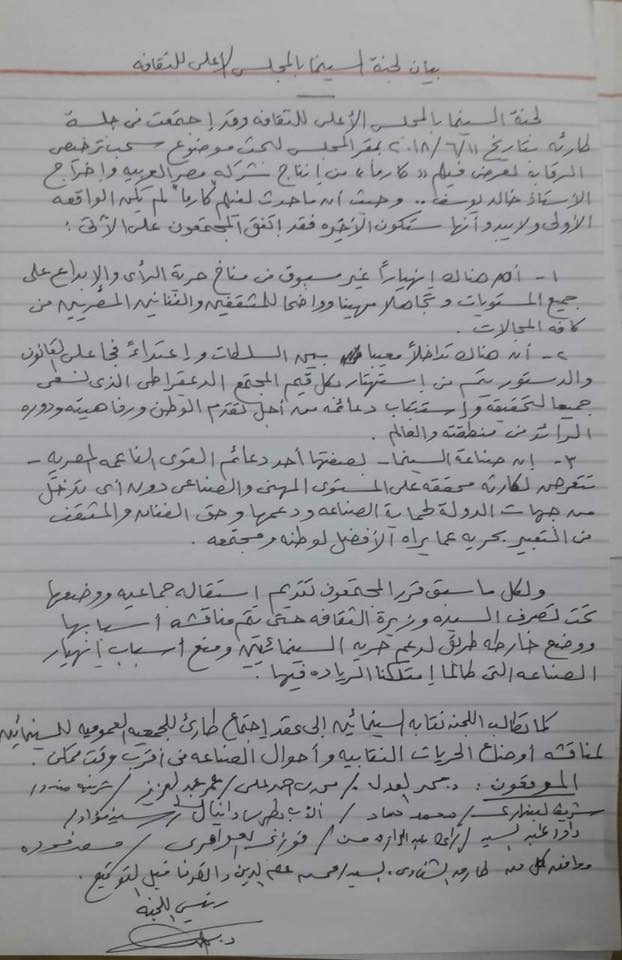 بيان لجنة السينما بالمجلس الأعلى للثقافه
لجنة السينما بالمجلس الأعلى للثقافه وقد إجتمعت فى جلسة
طارئه بتاريخ ٢٠١٨/٦/١١ بمقر المجلس لبحث موضوع سحب ترخيص
الرقابة لعرض فيلم "كارما" من إنتاج شركه مصر العربيه وإخراج
الأستاذ خالد يوسف .. وحيث أن ماحدث لفيلم "كارما" لم يكن الواقعه
الأولى ولا يبدو أنها ستكون الأخيره فقد إتفق المجتمعون على الآتى :
١- أن هناك إنهياراً غير مسبوق فى مناخ حرية الرأى والإبداع على
جميع المستويات وتجاهلا مهينا وواضحا للمثقفين والفنانين المصريين من
كافه المجالات .
٢- أن هناك تداخلاً معيبا بين السلطات وإعتداءً فجا على القانون
والدستور يتم فى إستهتار بكل قيم المجتمع الديمقراطى الذى نسعى
جميعا لتحقيقه وإستتباب دعائمه من أجل تقدم الوطن ورفاهيته ودوره
الرائد فى منطقته والعالم .
٣- إن صناعة السينما - بصفتها أحد دعائم القوى الناعمه المصريه -
تتعرض لكارثه محققه على المستوى المهنى والصناعى دون أى تدخل
من جهات الدولة لحماية الصناعه ودعمها وحق الفنان والمثقف
فى التعبير بحريه عما يراه الأفضل لوطنه ومجتمعه .
ولكل ماسبق قرر المجتمعون تقديم إستقاله جماعيه ووضعها
تحت تصرف السيده وزيرة الثقافه حتى يتم مناقشه أسبابها
ووضع خارطه طريق لدعم حرية السينمائيين ومنع أسباب إنهيار
الصناعه التى طالما إمتلكنا الرياده فيها .
كما تطالب اللجنه نقابه السينمائيين إلى عقد إجتماع طارئ للجمعيه العموميه للسينمائيين
لمناقشه أوضاع الحريات النقابيه وأحوال الصناعه فى أقرب وقت ممكن .
الموقعون : د. محمد العدل / / عمر عبد العزيز /
شريف البندارى / محمد حماد / الأب بطرس دانيال /
داود عبد السيد / / فوزى العوامرى / مسعد فوده
وموافقه كل من طارق الشناوى ، السيد / محسن علم الدين قبل التوقيع .
رئيس اللجنه